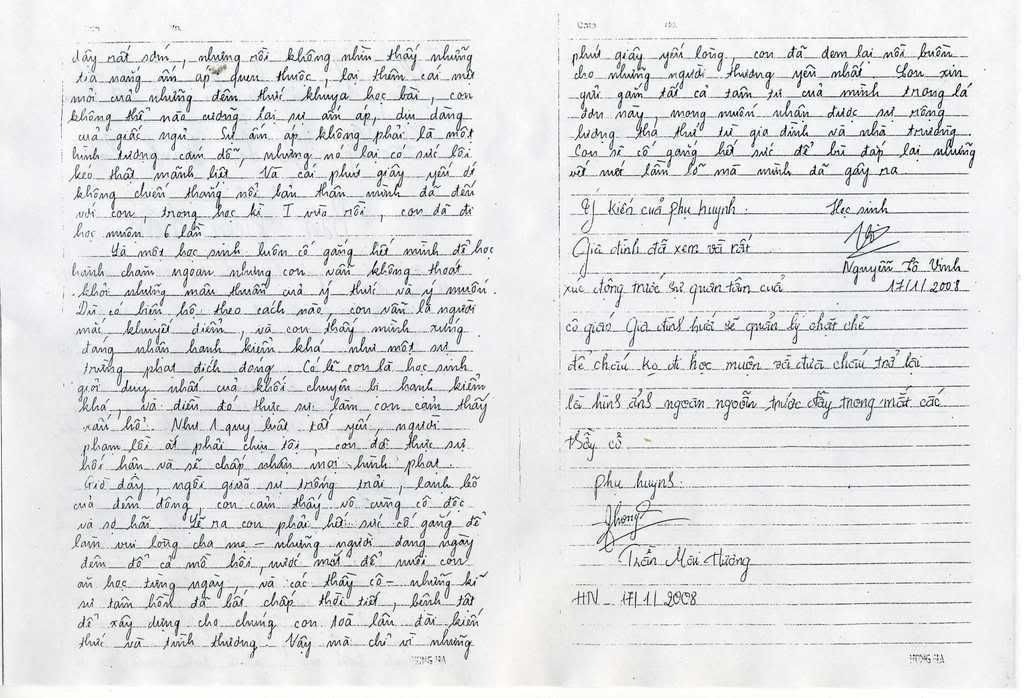 dậy rất sớm, nhưng rồi không nhìn thấy những
tia nắng ấm áp quen thuộc, lại thêm cái mệt
mỏi của những đêm thức khuya học bài, con
không thể nào cưỡng lại sự ấm áp, dịu dàng
của giấc ngủ. Sự ấm áp không phải là một
hình tượng cám dỗ, nhưng nó lại có sức lôi
kéo thật mãnh liệt. Và cái phút giây yếu ớt
không chiến thắng nổi bản thân mình đã đến
với con, trong học kì I vừa rồi, con đã đi
học muộn 6 lần
Là một học sinh luôn cố gắng hết mình để học
hành chăm ngoan nhưng con vẫn không thoát
khỏi những mâu thuẫn của ý thức và ý muốn.
Dù có biện hộ theo cách nào, con vẫn là người
mắc khuyết điểm, và con thấy mình xứng
đáng nhận hạnh kiểm khá như một sự
trừng phạt đích đáng. Có lẽ con là học sinh
giỏi duy nhất của khối chuyên bị hạnh kiểm
khá, và điều đó thực sự làm con cảm thấy
xấu hổ. Như 1 quy luật tất yếu, người
phạm lỗi ắt phải chịu tội, con đã thực sự
hối hận và sẽ chấp nhận mọi hình phạt.
Giờ đây, ngồi giữa sự trống trải, lạnh lẽo
của đêm đông, con cảm thấy vô cùng cô độc
và sợ hãi. Lẽ ra con phải hết sức cố gắng để
làm vui lòng cha mẹ - những người đang ngày
đêm đổ cả mồ hôi, nước mắt để nuôi con
ăn học từng ngày, và các thầy cô - những kĩ
sư tâm hồn đã bất chấp thời tiết, bệnh tật
để xây dựng cho chúng con toà lâu đài kiến
thức và tình thương. Vậy mà chỉ vì những
HONG HA
phút giây yếu lòng, con đã đem lại nỗi buồn
cho những người thương yêu nhất. Con xin
gửi gắm tất cả tâm tư của mình trong lá
đơn này, mong muốn nhận được sự rộng
lượng tha thứ từ gia đình và nhà trường.
Con sẽ cố gắng hết sức để bù đắp lại những
vết mới lầm lỗ mà mình đã gây ra
Ý kiến của phụ huynh: Học sinh
Gia đình đã xem và rất
Nguyễn Tô Vinh
xúc động trước sự quan tâm của 17/1/2008
cô giáo. Gia đình hứa sẽ quản lý chặt chẽ
để cháu ko đi học muộn và đưa cháu trở lại
là hình ảnh ngoan ngoãn trước đây trong mắt các
thầy cô.
Phụ huynh:
Trần Mai Hương
HN - 17/1/2008
HONG HA